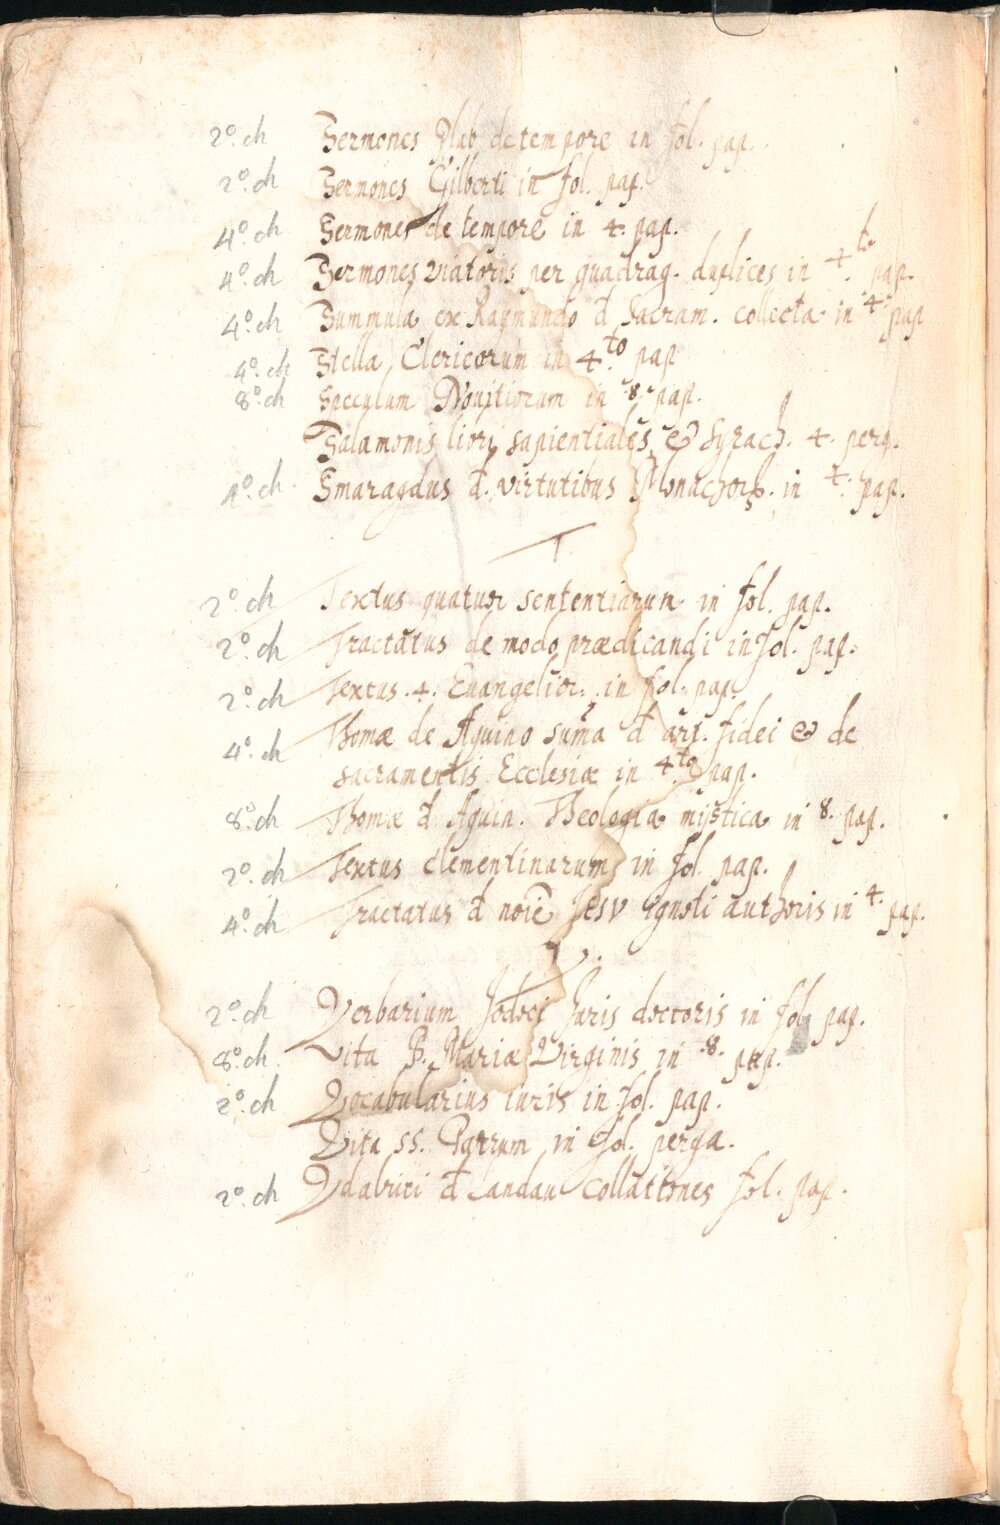 2º. ch Sermones de tempore in fol. pap.
2º. ch Sermones Gilberti in fol. pap.
4º. ch Sermones de tempore in 4. pap.
4º. ch Sermones Viatoris per quadrag. duplices in 4.to pap.
4º. ch Summula ex Raymundo d̄ Sacram. collecta in 4. pap
4º. ch Stella Clericorum in 4.to pap
8º. ch Speculum Nouitiorum in .8. pap.
Salamonis libri sapientiales & Syrach. 4. perg.
4º. ch. Smaragdus d̄. virtutibus Monachorꝝ. in 4. pap.
T.
2º. ch Textus quatuor sententiarum in fol. pap.
2º. ch Tractatus de modo prædicandi in fol. pap.
2º. ch Textus .4. Euangelior. in fol. pap.
4º. ch Thomæ de Aquino suma d̄ art. fidei & de
sacramentis Ecclesiæ in 4.to pap.
8º. ch Thomæ d̄ Aquin. Theologia mistica in 8. pap.
2º. ch Textus Clementinarum in fol. pap.
4º. ch Tractatus d̄ noīe Iesv Ignoti authoris in 4. pap.
V.
2º. ch Verbarium Jodoci Juris doctoris in fol. pap.
8º. ch. Vita B. Mariæ Virginis in .8. pap.
2º. ch Vocabularius iuris in fol. pap.
Vita SS. Patrum in fol. perga.
2º. ch Vdalrici d̄ Landau Collationes fol. pap.